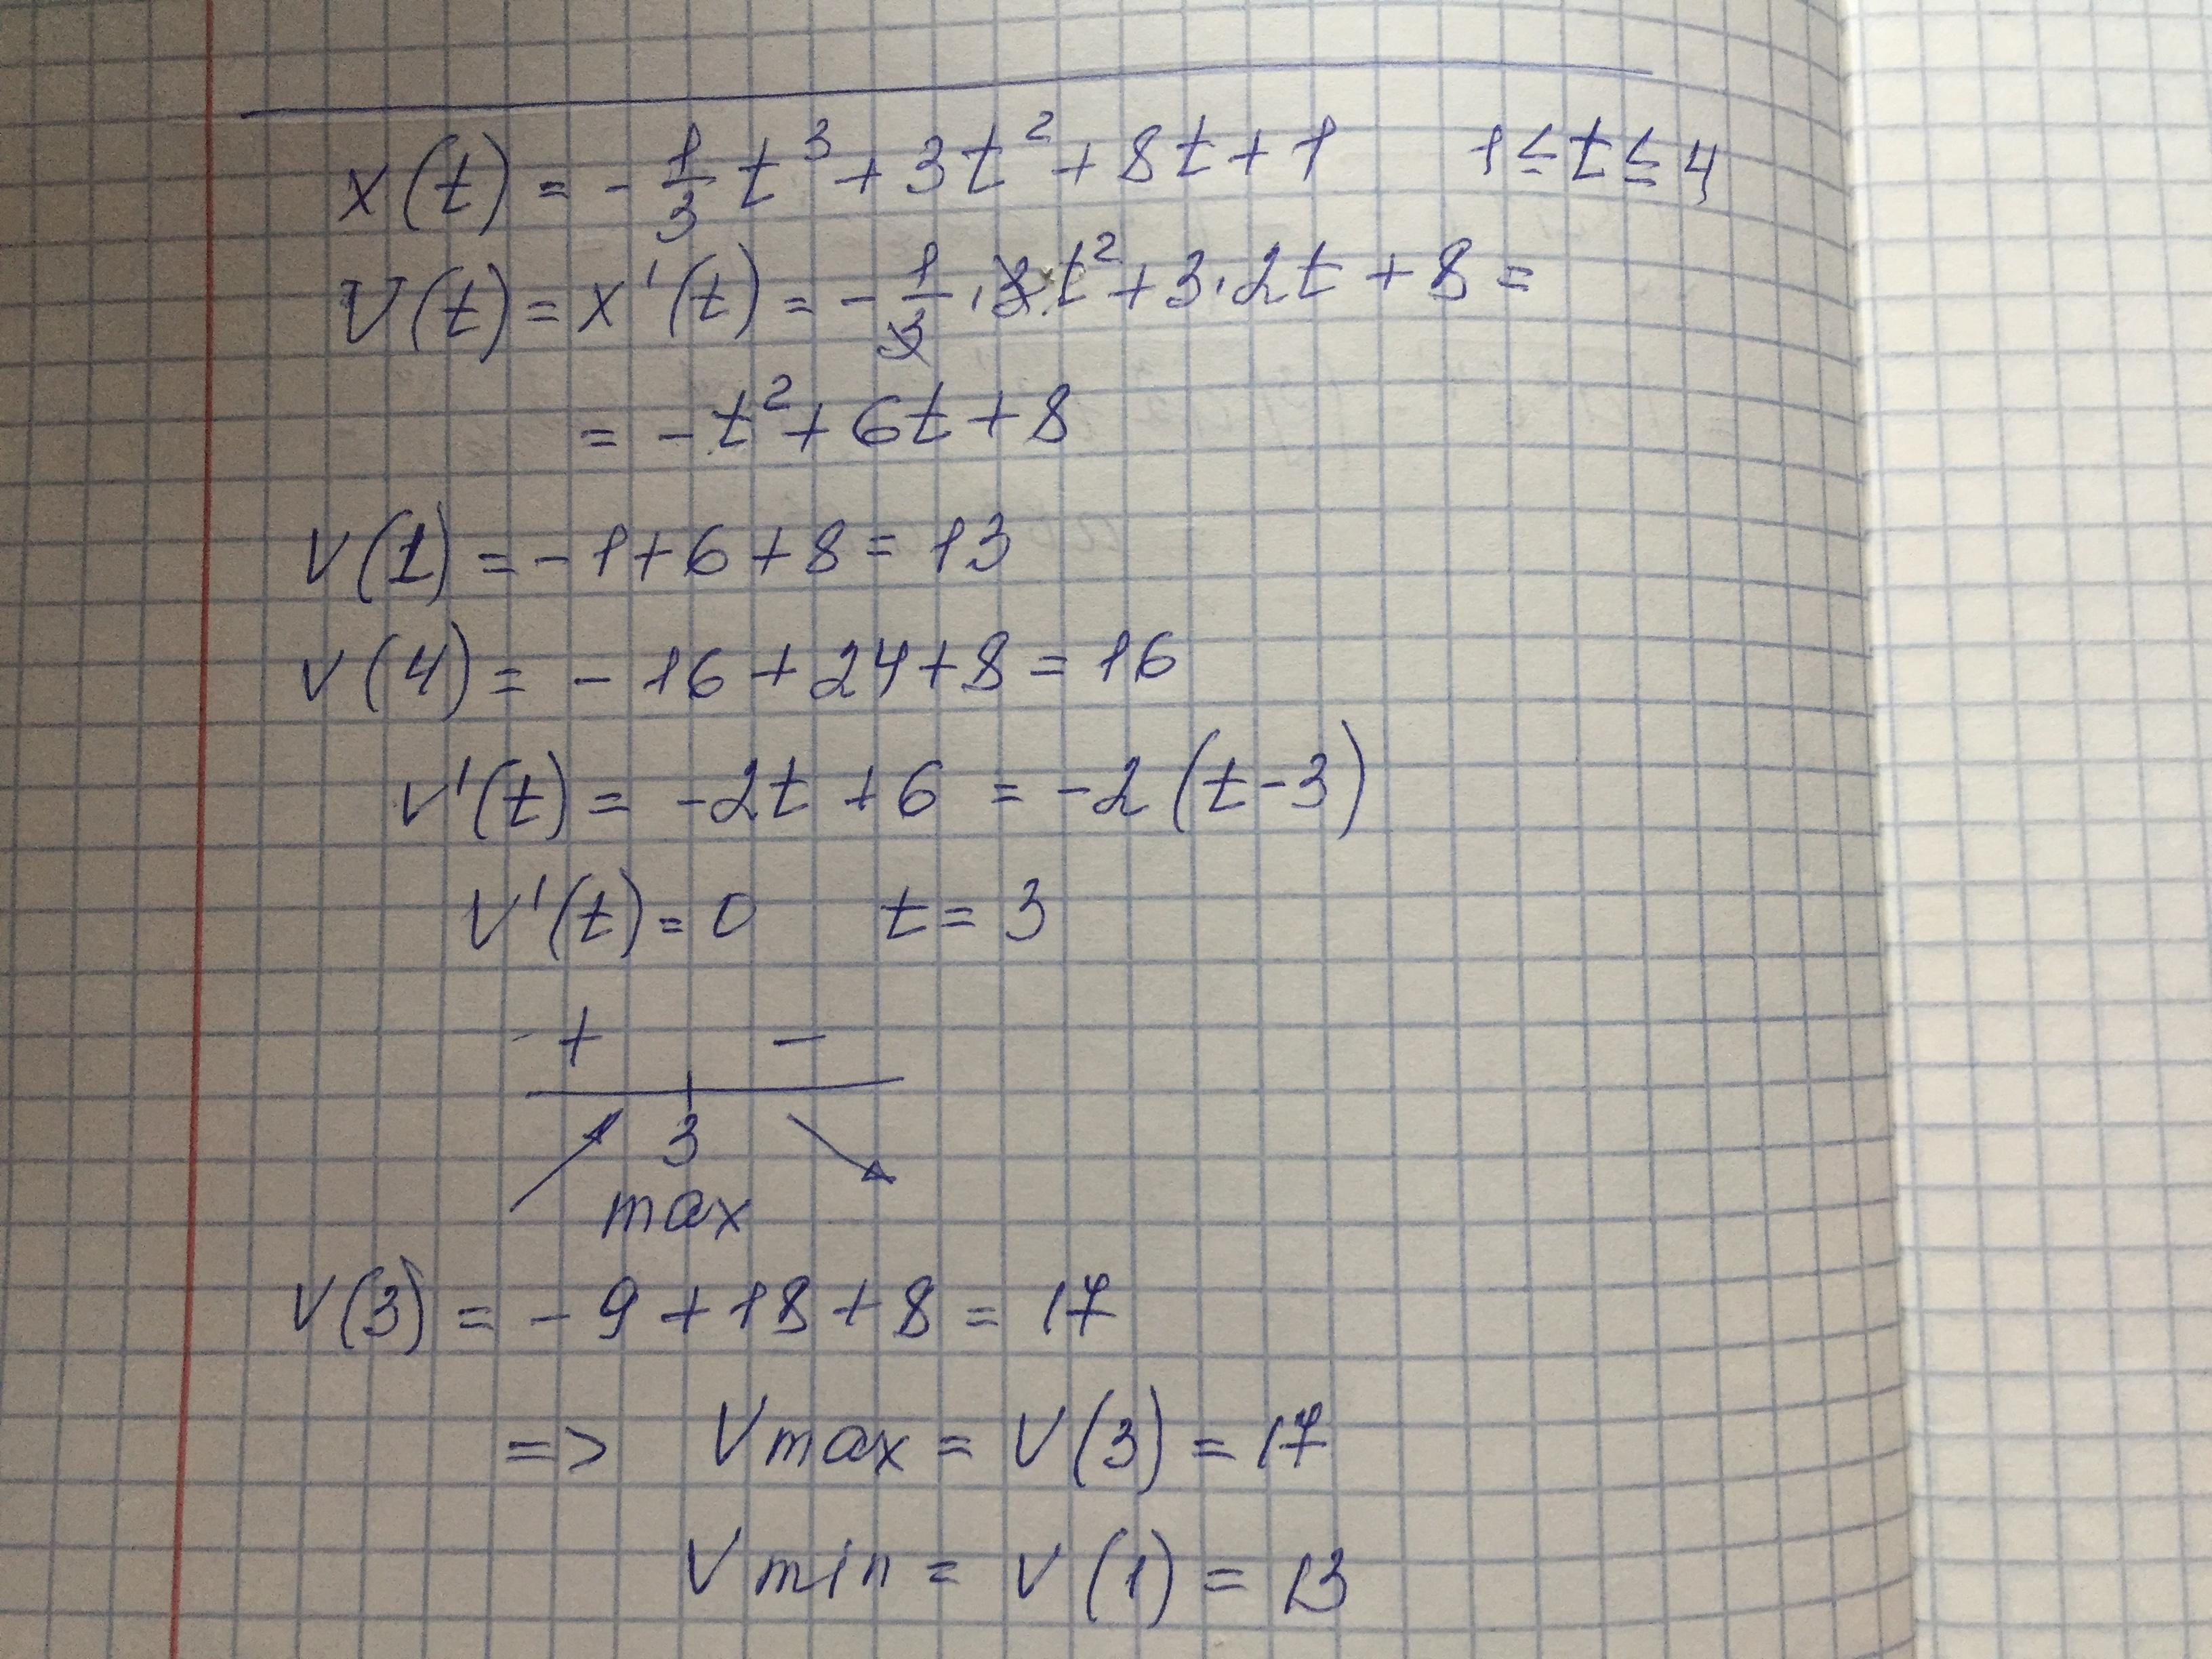 x(t) = - 1/3 t³ + 3t² + 8t + 1    1 ≤ t ≤ 4
V(t) = x'(t) = - 1/3 · 3 · t² + 3 · 2t + 8 =
= - t² + 6t + 8
V(1) = - 1 + 6 + 8 = 13
V(4) = - 16 + 24 + 8 = 16
V'(t) = - 2t + 6 = - 2 (t - 3)
V'(t) = 0    t = 3
+ -
3
max
V(3) = - 9 + 18 + 8 = 17
=> Vmax = V(3) = 17
Vmin = V(1) = 13